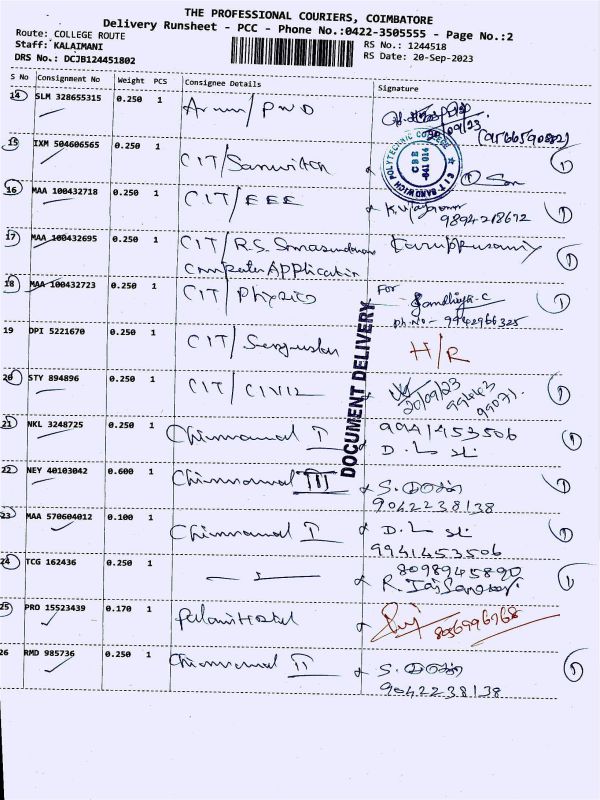 THE PROFESSIONAL COURIERS, COIMBATORE
Delivery Runsheet - PCC - Phone No.:0422-3505555 - Page No.:2
Route: COLLEGE ROUTE
Staff: KALAIMANI
DRS No.: DCJB124451802
RS No.: 1244518
RS Date: 20-Sep-2023
S No Consignment No Weight PCS Consignee Details Signature
14 SLM 328655315 0.250 1 Arun/PWD
20/09/23
15 IXM 504606565 0.250 1 CIT/Sanwitch
16 MAA 100432718 0.250 1 CIT/EEE
9894218672
17 MAA 100432695 0.250 1 CIT/R.S.
Computer Application
18 MAA 100432723 0.250 1 CIT/Physics For
Ph.No:- 9942966325
19 DPI 5221670 0.250 1 CIT/ H/R
20 STY 894896 0.250 1 CIT/CIVIL
20/09/23
21 NKL 3248725 0.250 1 Chinnamal I 9941453506
22 NEY 40103042 0.600 1 Chinnamal III S.
9042238138
23 MAA 570604012 0.100 1 Chinnamal I
9941453506
24 TCG 162436 0.250 1 8098945890
25 PRO 15523439 0.170 1 Palani Hostel
26 RMD 985736 0.250 1 Chinnamal II S.
9042238138
DOCUMENT DELIVERY
CBE
641 014